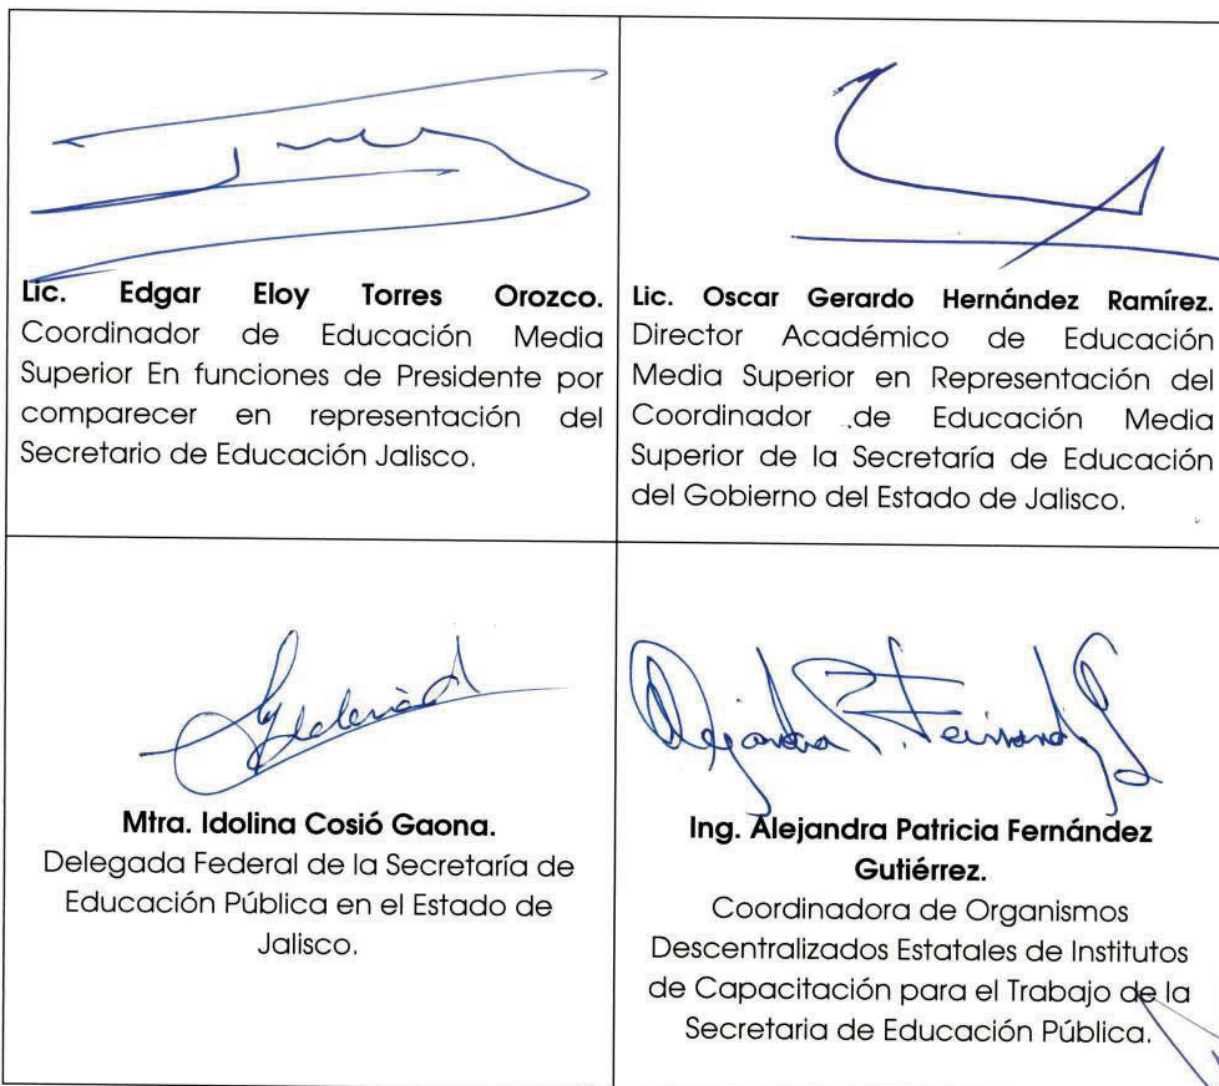 Lic. Edgar Eloy Torres Orozco.
Coordinador de Educación Media
Superior En funciones de Presidente por
comparecer en representación del
Secretario de Educación Jalisco.
Lic. Oscar Gerardo Hernández Ramírez.
Director Académico de Educación
Media Superior en Representación del
Coordinador de Educación Media
Superior de la Secretaría de Educación
del Gobierno del Estado de Jalisco.
Mtra. Idolina Cosió Gaona.
Delegada Federal de la Secretaría de
Educación Pública en el Estado de
Jalisco.
Alejandra P. Fernández
Ing. Alejandra Patricia Fernández
Gutiérrez.
Coordinadora de Organismos
Descentralizados Estatales de Institutos
de Capacitación para el Trabajo de la
Secretaria de Educación Pública.